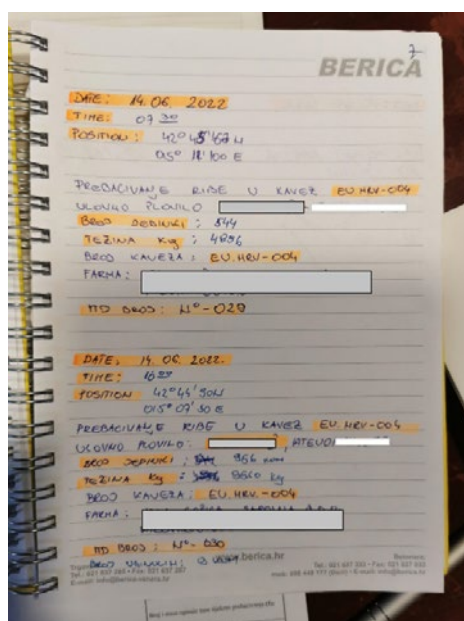 7
BERICA
DATE: 14.06.2022
TIME: 07 30
POSITION: 42° 45' 67 N
015° 11' 100 E
PREBACIVANJE RIBE U KAVEZ EU.HRV-004
ULOVNO PLOVILO
BROJ JEDINKI: 544
TEŽINA kg: 4896
BROJ KAVEZA: EU.HRV-004
FARMA:
ITD BROJ: N°-029
DATE: 14.06.2022.
TIME:
POSITION 42° 44' 50N
015° 07' 50 E
PREBACIVANJE RIBE U KAVEZ EU.HRV-004
ULOVNO PLOVILO:
BROJ JEDINKI: 956 kom
TEŽINA kg: kg
BROJ KAVEZA: EU.HRV.-004
FARMA:
ITD BROJ: N°-030
www.berica.hr